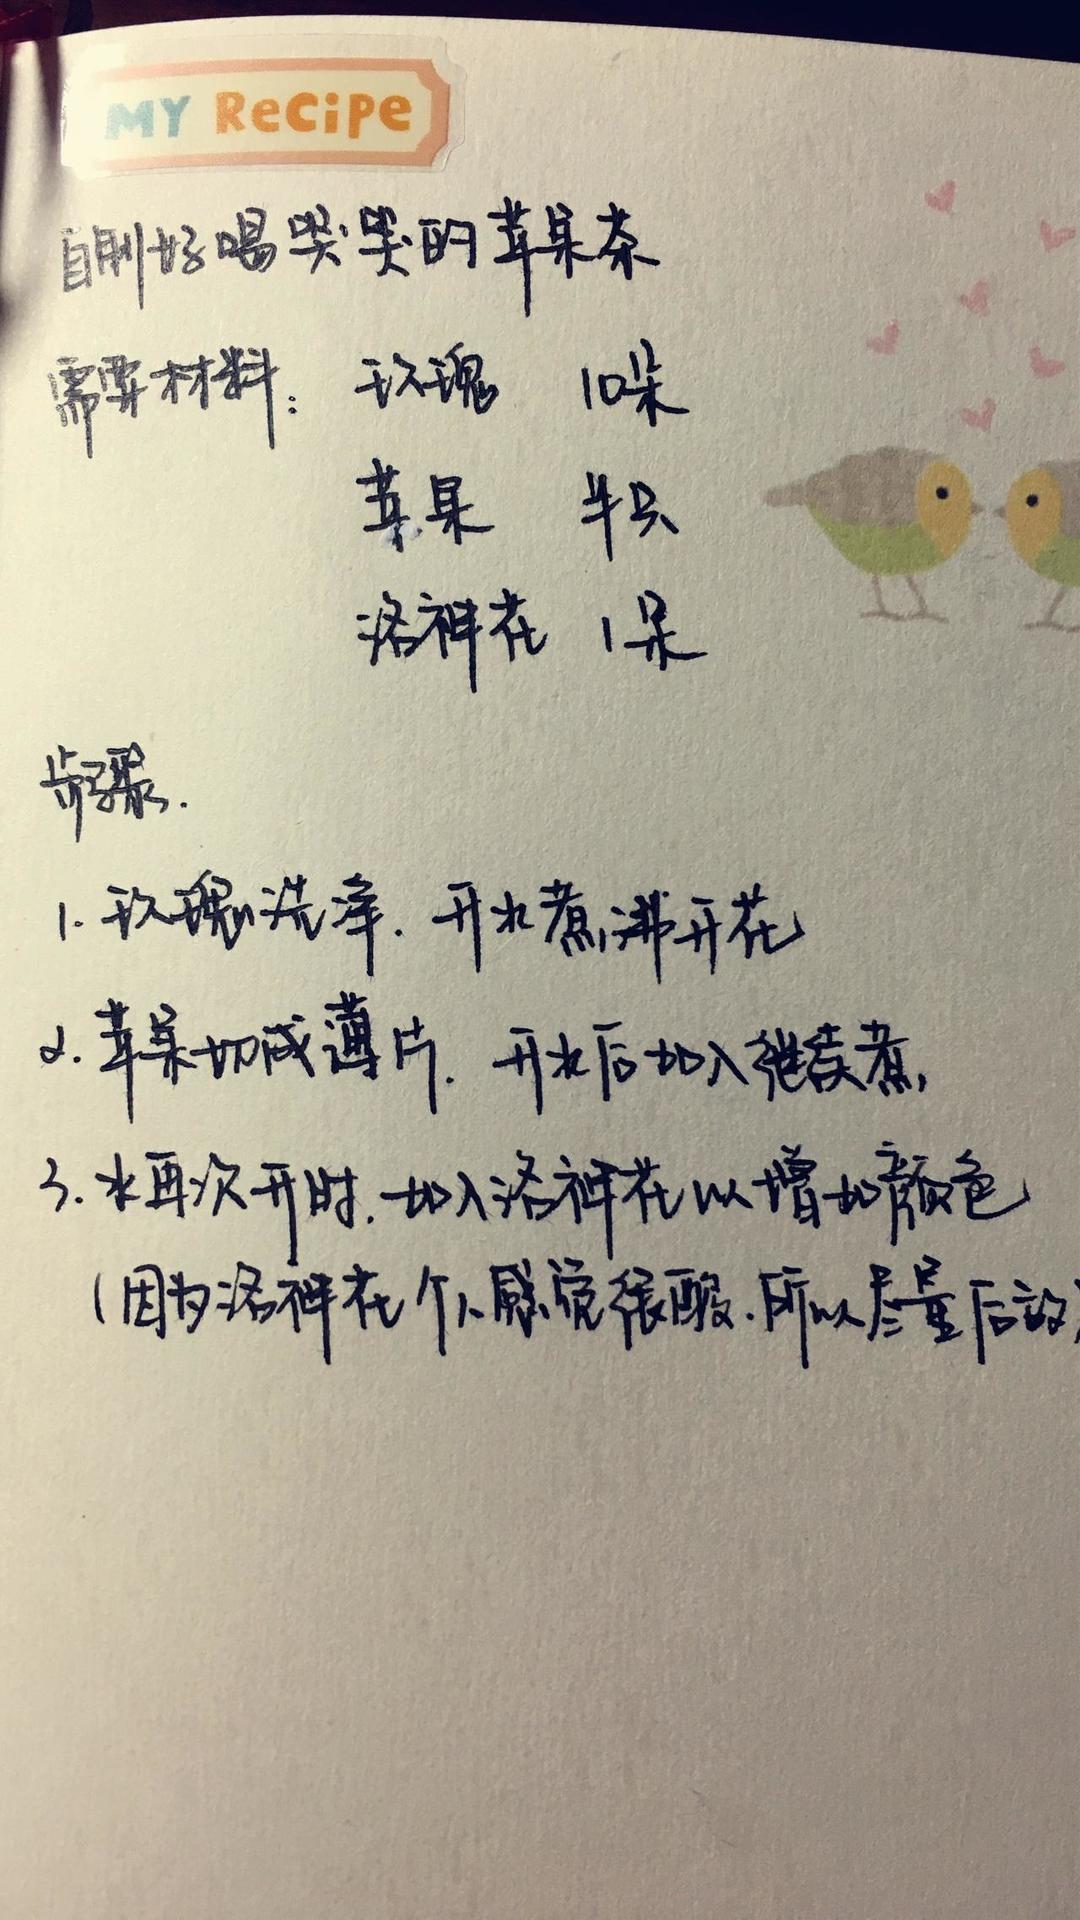 MY Recipe
自制好喝哭哭的苹果茶
需要材料: 玫瑰 10朵
苹果 半只
洛神花 1朵
步骤.
1. 玫瑰洗净. 开水煮沸开花
2. 苹果切成薄片. 开水后加入继续煮,
3. 水再次开时. 加入洛神花以增加颜色
(因为洛神花个人感觉很酸.所以尽量后放)